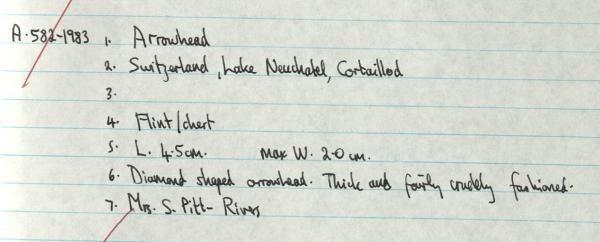 A.582-1983 1. Arrowhead
2. Switzerland, Lake Neuchatel, Cortaillod
3.
4. Flint/chert
5. L. 4.5cm. max W. 2.0 cm.
6. Diamond shaped arrowhead. Thick and fairly crudely fashioned.
7. Mrs. S. Pitt-Rivers